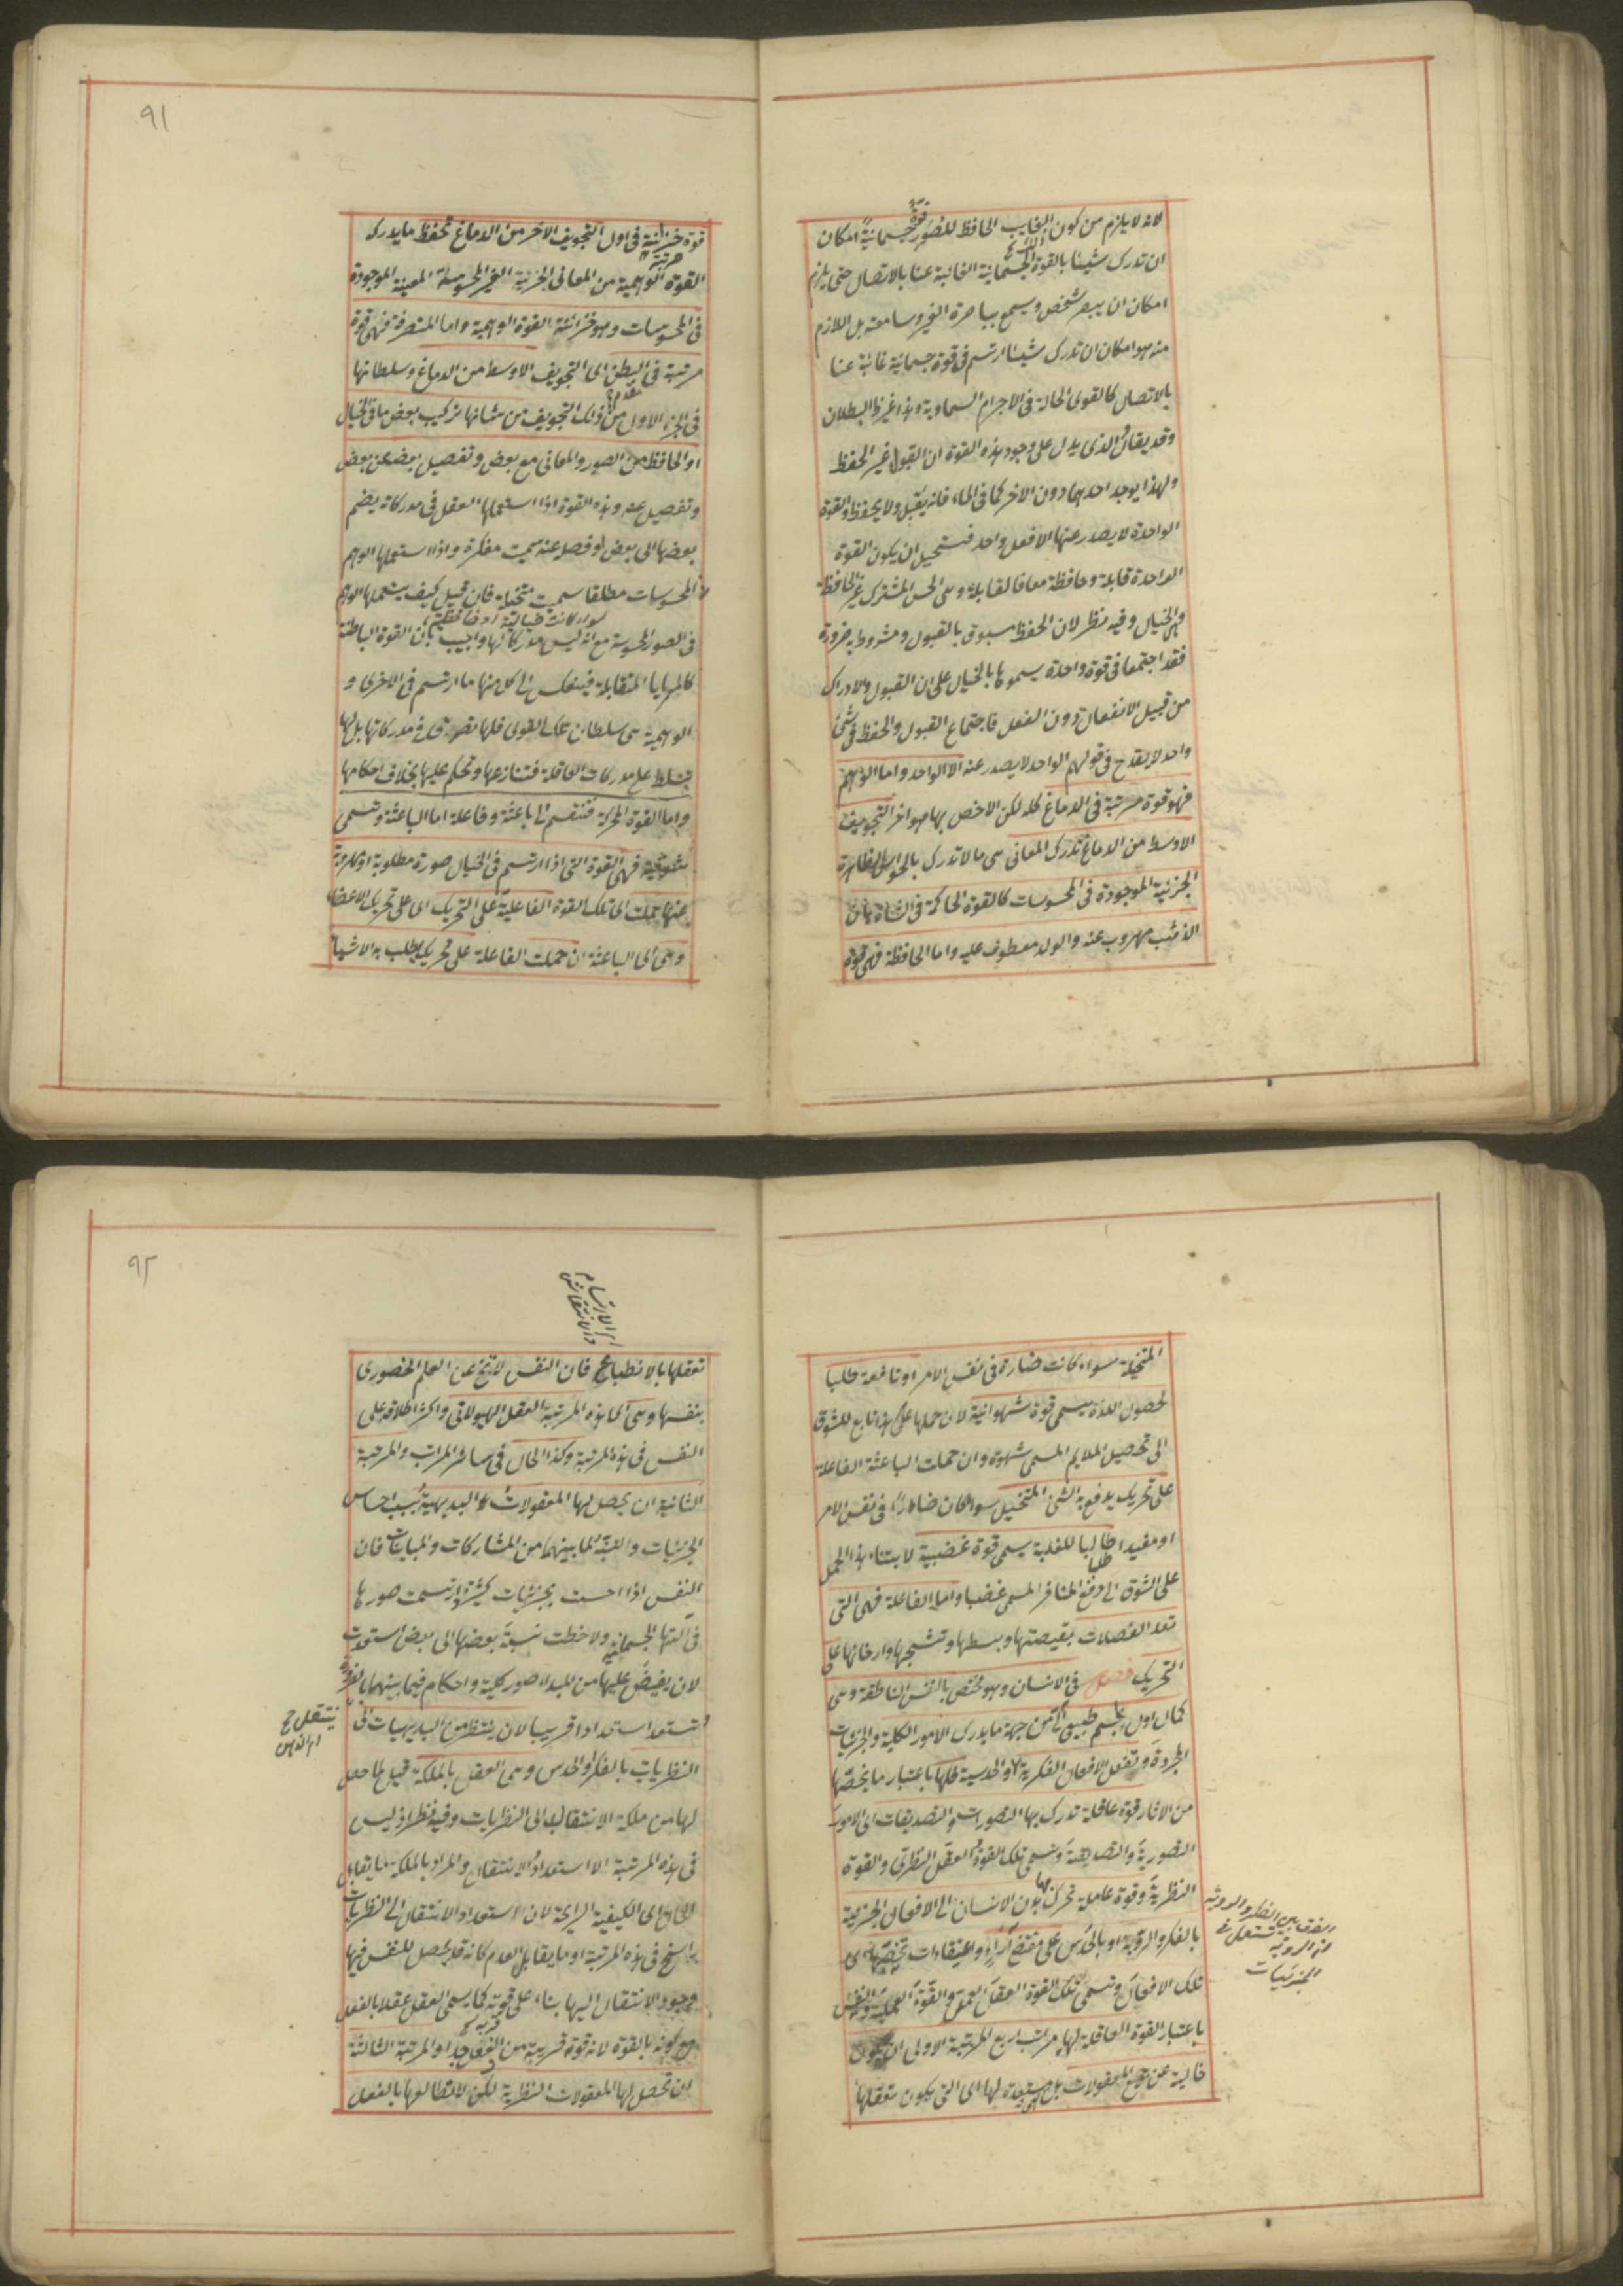 لانه لا يلزم من كون الغايب الحافظ للصور قوة جسمانية امكان
ان تدرك شيئا بالقوة الجسمانية الغائبة عنا بالاتصال حتى يلزم
امكان ان يبصر شخص ويسمع بباصرة الغير وسامعته بل اللازم
منه هو امكان ان تدرك شيئا ارتسم فى قوة جسمانية غائبة عنا
بالاتصال كالقوى الحالة فى الاجرام السماوية وهذا غير ظ البطلان
وقد يقال الذى يدل على وجود هذه القوة ان القبول غير الحفظ
ولهذا يوجد احدهما دون الاخر كما فى الماء فانه يقبل ولا يحفظ والقوة
الواحدة لا يصدر عنها الا فعل واحد فستحيل ان يكون القوة
الواحدة قابلة وحافظة معا فالقابلة وهى الحس المشترك غير الحافظة
وهى الخيال وفيه نظر لان الحفظ مسبوق بالقبول ومشروط به ضرورة
فقد اجتمعا فى قوة واحدة يسموها بالخيال على ان القبول والادراك
من قبيل الانفعال دون الفعل فاجتماع القبول والحفظ فى شئ
واحد لا يقدح فى قولهم الواحد لا يصدر عنه الا الواحد واما الوهم
فهو قوة مرتبة فى الدماغ كله لكن الاخص بها هو اخر التجويف
الاوسط من الدماغ تدرك المعانى هى ما لا تدرك بالحواس الظاهرة
الجزئية الموجودة فى المحسوسات كالقوة الحاكمة فى الشاة بان
الذئب مهروب عنه والولد معطوف عليه واما الحافظة فهى قوة
٩١
قوة خزانية فى اول التجويف الاخر من الدماغ تحفظ ما يدركه
مرتبة
القوة الوهمية من المعانى الجزئية الغير المحسوسة المعينة الموجودة
فى المحسوسات وهو خزانة القوة الوهمية واما المتصرفة فهى قوة
مرتبة فى البطن اى التجويف الاوسط من الدماغ وسلطانها
فى الجزء الاول من ذلك التجويف من شانها تركيب بعض ما فى الخيال
او الحافظ من الصور والمعانى مع بعض وتفصيل بعضه عن بعض
وتفصيل عنه وهذه القوة اذا استعملها العقل فى مدركاته يضم
بعضها الى بعض او فصله عنه سميت مفكرة واذا استعملها الوهم
فى المحسوسات مطلقا سميت متخيلة فان قيل كيف يستعملها الوهم
فى الصور المحسوسة مع انه ليس مدركا لها واجيب بان القوة الباطنة
كالمرايا المتقابلة فينعكس الى كل منها ما ارتسم فى الاخرى و
الوهمية هى سلطان تلك القوى فلها تصرف فى مدركاتها بل لها
تسلط على مدركات العاقلة فتنازعها وتحكم عليها بخلاف احكامها
واما القوة المحركة فتنقسم الى باعثة وفاعلة اما الباعثة وتسمى
شوقية فهى القوة التى اذا ارتسم فى الخيال صورة مطلوبة او مهروبة
عنها حملت اى تلك القوة الفاعلية على التحريك اى على تحريك الاعضاء
وهى اى الباعثة ان حملت الفاعلة على تحريك يطلب به الاشياء
المتخيلة سواء كانت ضارة فى نفس الامر او نافعة طلبا
لحصول اللذة يسمى قوة شهوانية لان حملها على هذا تابع للشوق
الى تحصيل الملايم المسمى شهوة وان حملت الباعثة الفاعلة
على تحريك يدفع به الشئ المتخيل سواء كان ضارا فى نفس الامر
او مفيدا طالبا للغلبة يسمى قوة غضبية لابتناء هذا الحمل
على الشوق الى دفع المنافر المسمى غضبا واما الفاعلة فهى التى
تعد العضلات بقبضتها وبسطها وتشنجها وارخائها على
التحريك فصل فى الانسان وهو مختص بالنفس الناطقة وهى
كمال اول لجسم طبيعى آلى من جهة ما يدرك الامور الكلية والجزئيات
المجردة وتفعل الافعال الفكرية والحدسية فلها باعتبار ما يخصها
من الاثار قوة عاقلة تدرك بها التصورات والتصديقات اى الامور
التصورية والتصديقية وتسمى تلك القوة العقل النظرى والقوة
النظرية وقوة عاملة تحرك بها بدن الانسان الى الافعال الجزئية
بالفكر والروية او بالحدس على مقتضى آراء واعتقادات تخصها اى
تلك الافعال وتسمى تلك القوة العقل العملى والقوة العملية والنفس
باعتبار القوة العاقلة لها مراتب اربع المرتبة الاولى ان تكون
خالية عن جميع المعقولات بل مستعدة لها اى التى يكون تعقلها
الفرق بين الفكر والروية
ان الروية تستعمل فى
الجزئيات
٩٢
اى الارتسام
والانتقاش
تعقلها بالانطباع فان النفس لا تخ عن العلم الحضورى
بنفسها وهى اى هذه المرتبة العقل الهيولانى واكثر اطلاقه على
النفس فى هذه المرتبة وكذا الحال فى سائر المراتب والمرتبة
الثانية ان يحصل لها المعقولات البديهية بسبب احساس
الجزئيات والتنبه لما بينهما من المشاركات والمباينات فان
النفس اذا احست بجزئيات كثيرة وارتسمت صورها
فى آلتها الجسمانية ولاحظت نسبة بعضها الى بعض استعدت
لان يفيض عليها من المبداء صور كلية واحكام فيما بينهما بالضرورة
وتستعد استعدادا قريبا لان ينتظر من البديهيات الى
ينتقل ح
اى الذهن
النظريات بالفكر او الحدس وهى العقل بالملكة قيل لما حصل
لها من ملكة الانتقال الى النظريات وفيه نظر اذ ليس
فى هذه المرتبة الا استعداد الانتقال والمراد بالملكة ما يقابل
الحال اى الكيفية الراسخة لان استعداد الانتقال الى النظريات
راسخ فى هذه المرتبة او ما يقابل العدم كانه قد يحصل للنفس فيها
وجود الانتقال اليها بناء على قربه كما يسمى العقل عقلا بالفعل
مع كونه بالقوة لانه قوة قريبة من الفعل جدا والمرتبة الثالثة
ان تحصل لها المعقولات النظرية لكن لا تطالعها بالفعل